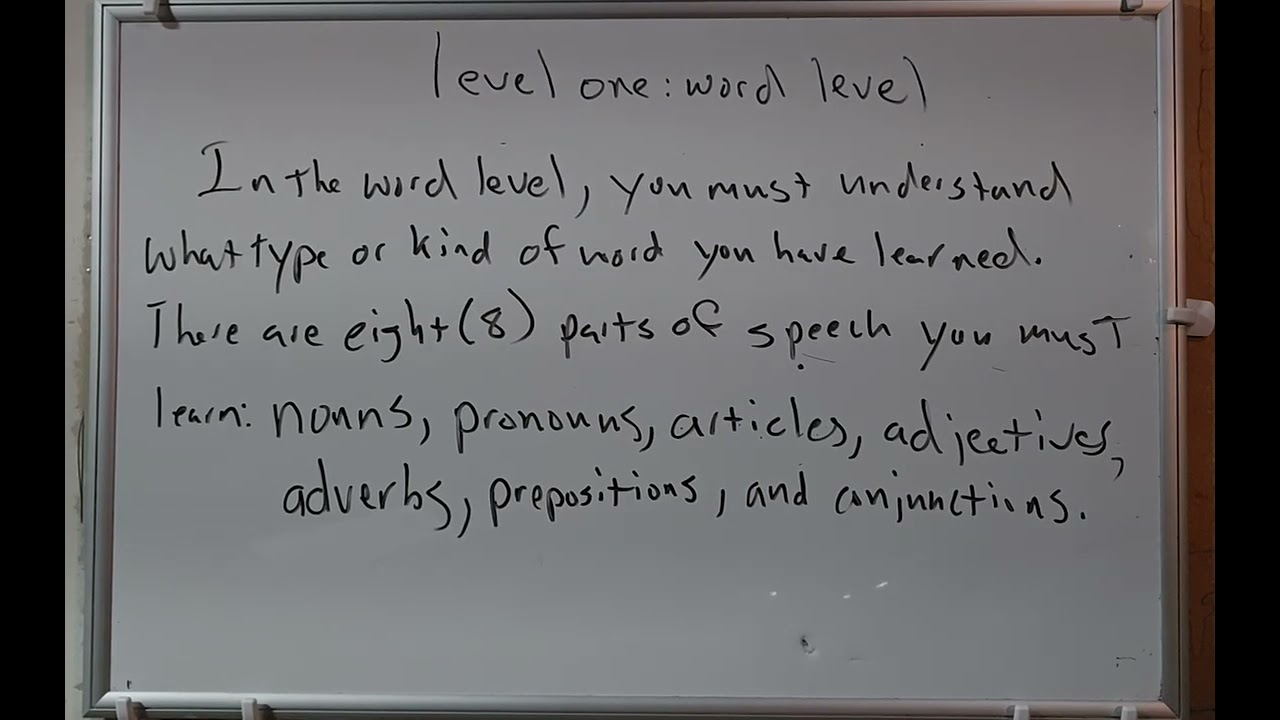 level one: word level
In the word level, you must understand
what type or kind of word you have learned.
There are eight (8) parts of speech you must
learn: nouns, pronouns, articles, adjectives,
adverbs, prepositions, and conjunctions.